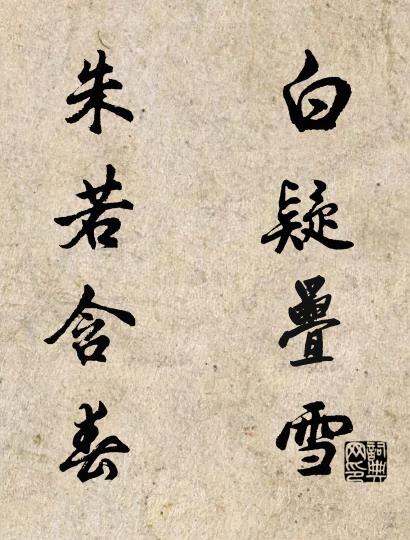 白疑疊雪
朱若含春
詞典網印